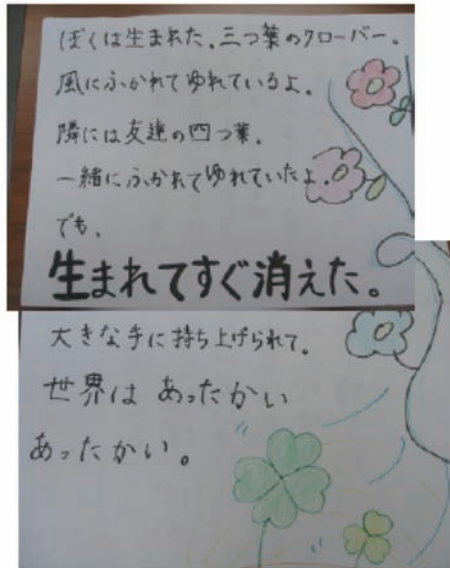 ぼくは生まれた。三つ葉のクローバー。
風にふかれてゆれているよ。
隣には友達の四つ葉。
一緒にふかれてゆれていたよ。
でも、
生まれてすぐ消えた。
大きな手に持ち上げられて。
世界は あったかい
あったかい。